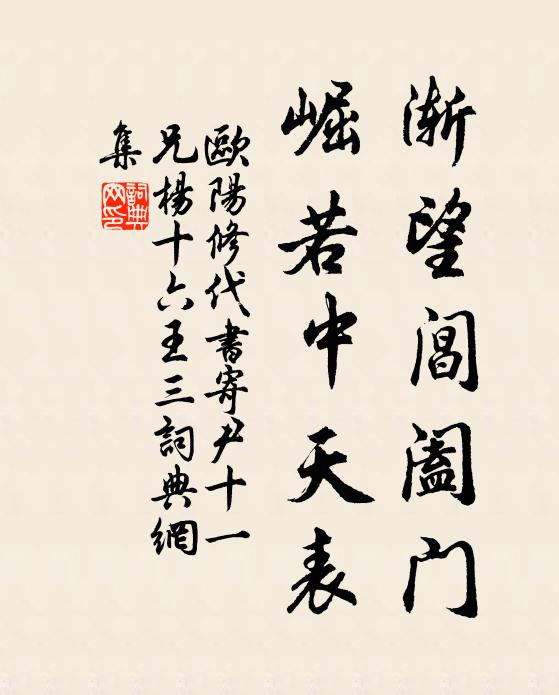 漸望閶闔門
崛若中天表
歐陽修代書寄尹十一
兄楊十六王三詞典網
集
詞典
网印